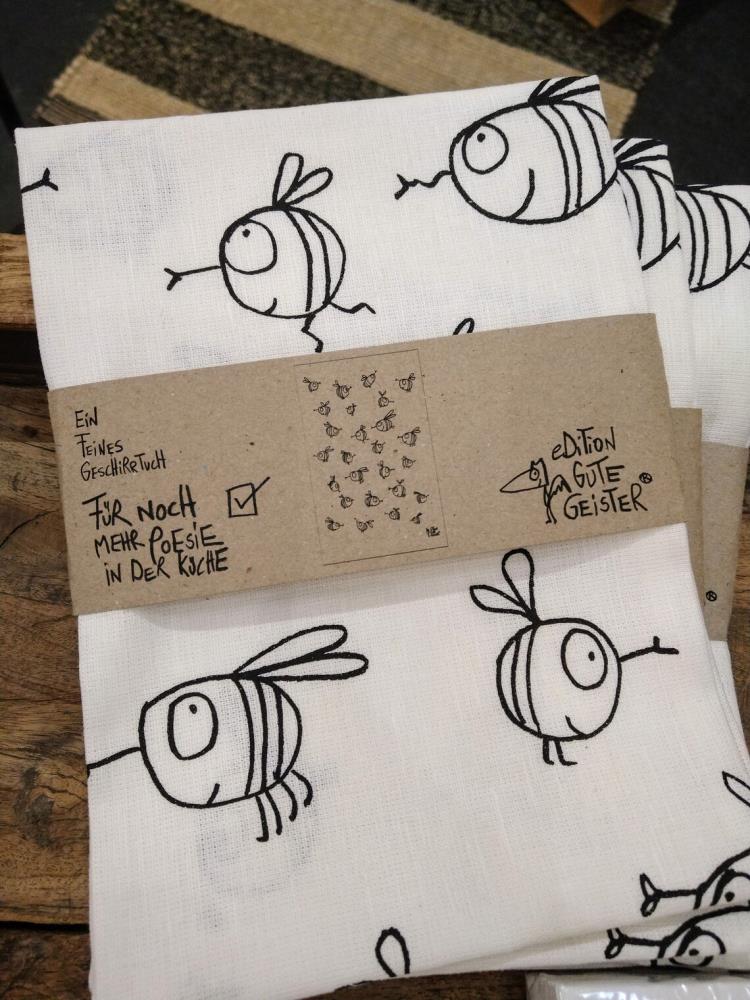 EiN
FEiNES
GESCHiRRTUCH
FÜR NOCH
MEHR POESiE
iN DER KÜCHE
eDiTiON
GUTE
GEiSTER®
®